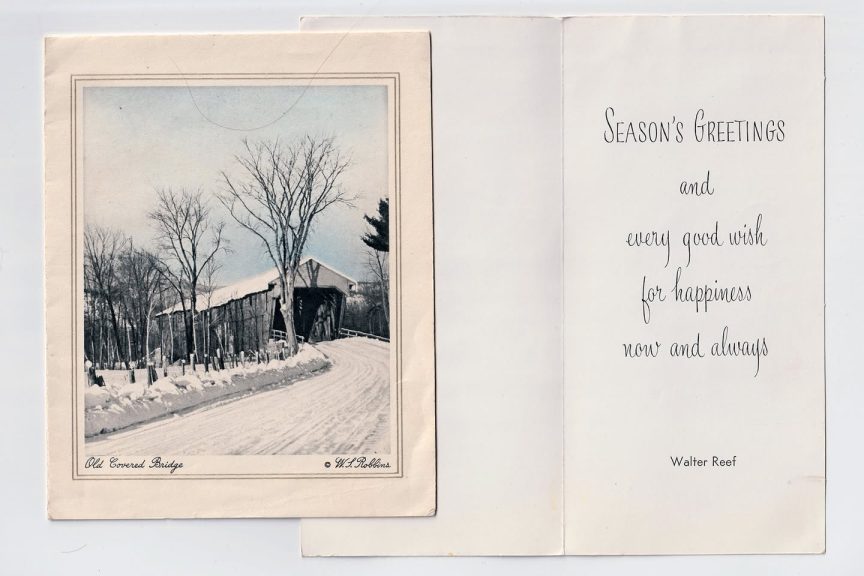 Old Covered Bridge
© W.S. Robbins
SEASON'S GREETINGS
and
every good wish
for happiness
now and always
Walter Reef